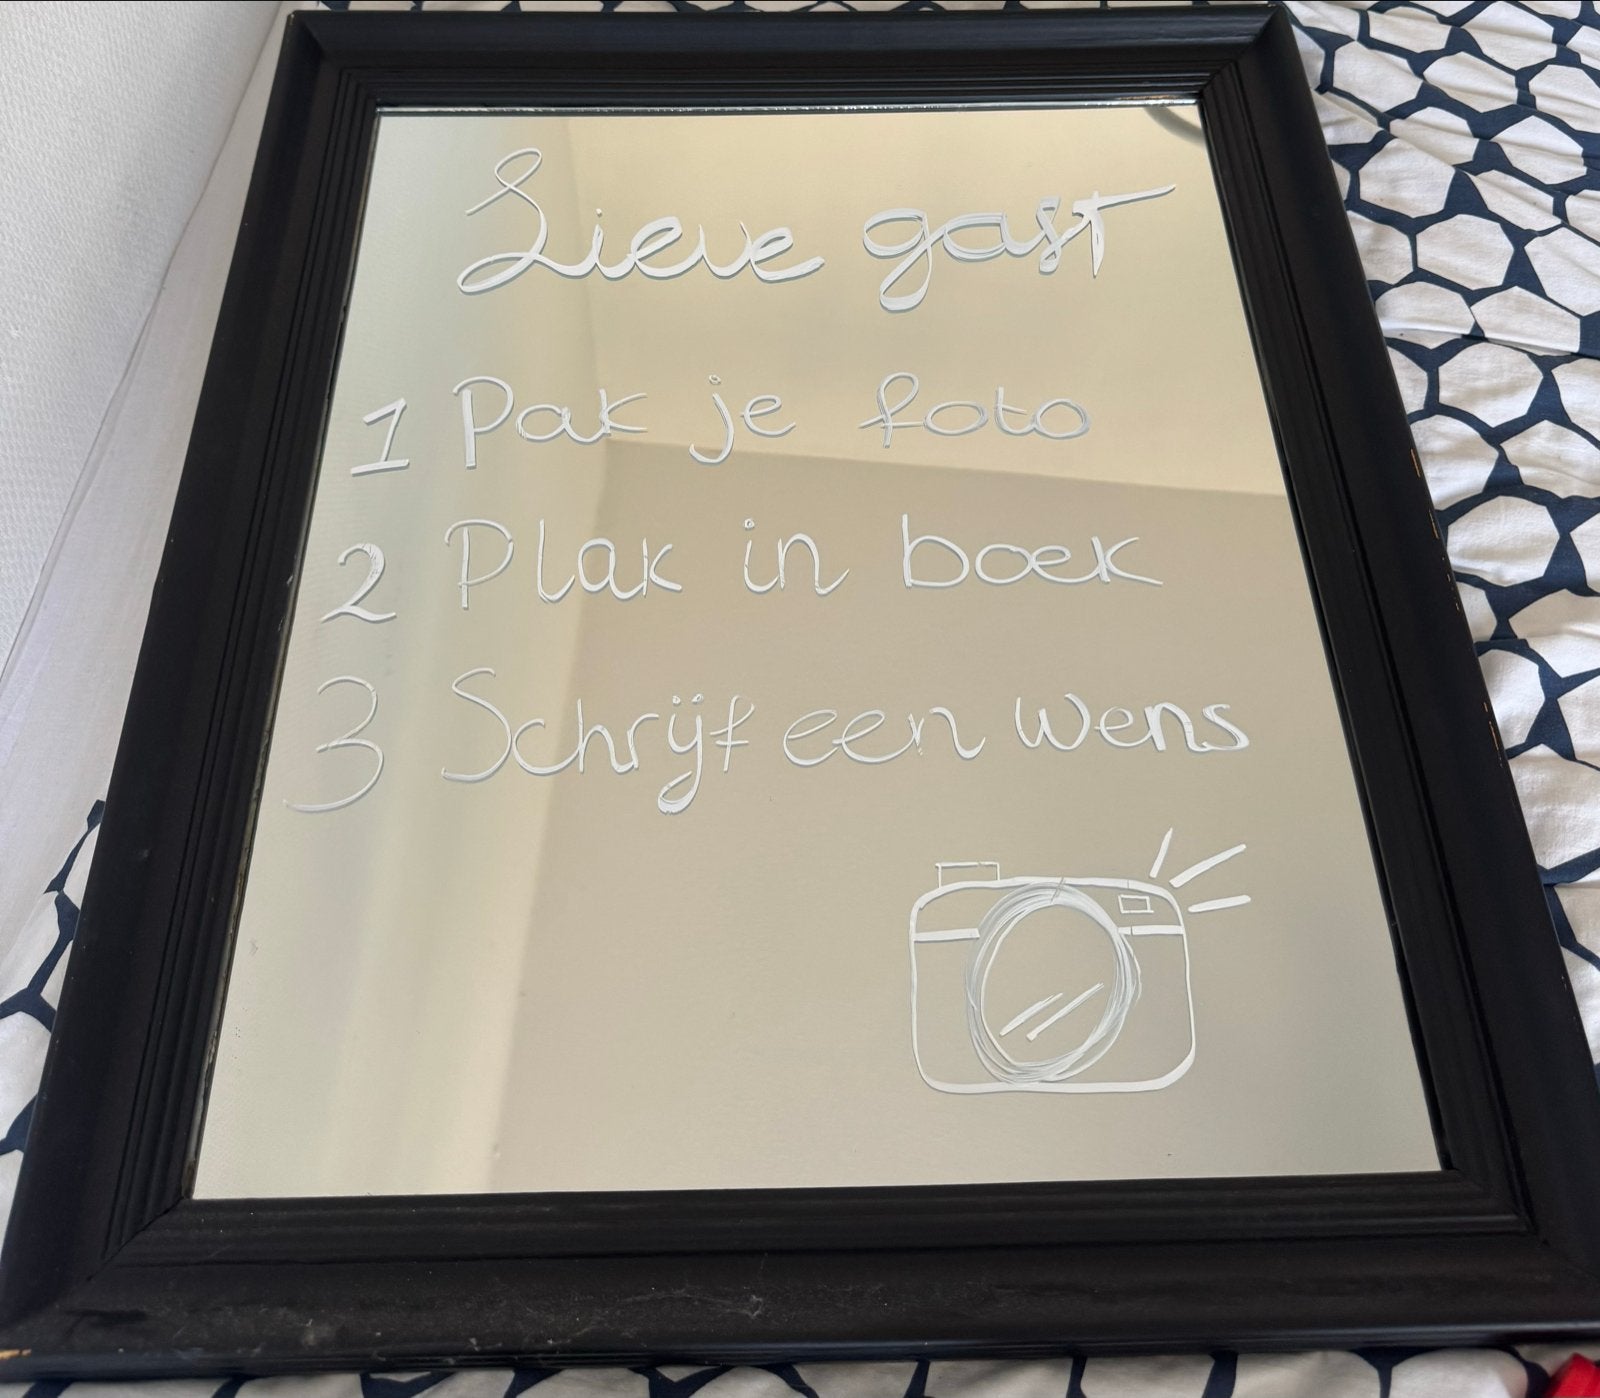 Lieve gast
1 Pak je foto
2 Plak in boek
3 Schrijf een wens